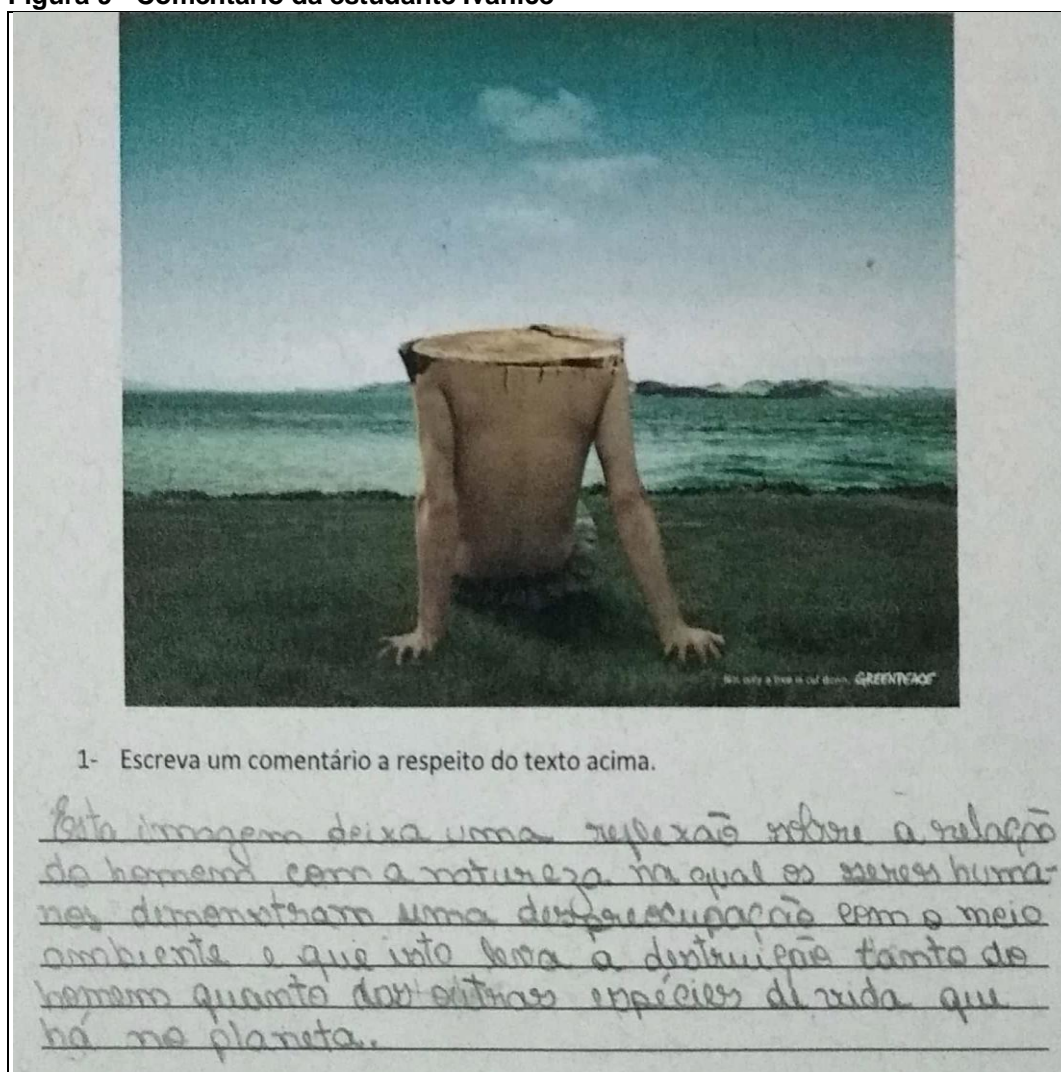 Figura 9 - Comentário da estudante Ivanice
Not only a tree is cut down. GREENPEACE
1- Escreva um comentário a respeito do texto acima.
Esta imagem deixa uma reflexão sobre a relação
do homem com a natureza na qual os seres huma-
nos demonstram uma despreocupação com o meio
ambiente e que isto leva a destruição tanto do
homem quanto das outras espécies de vida que
há no planeta.